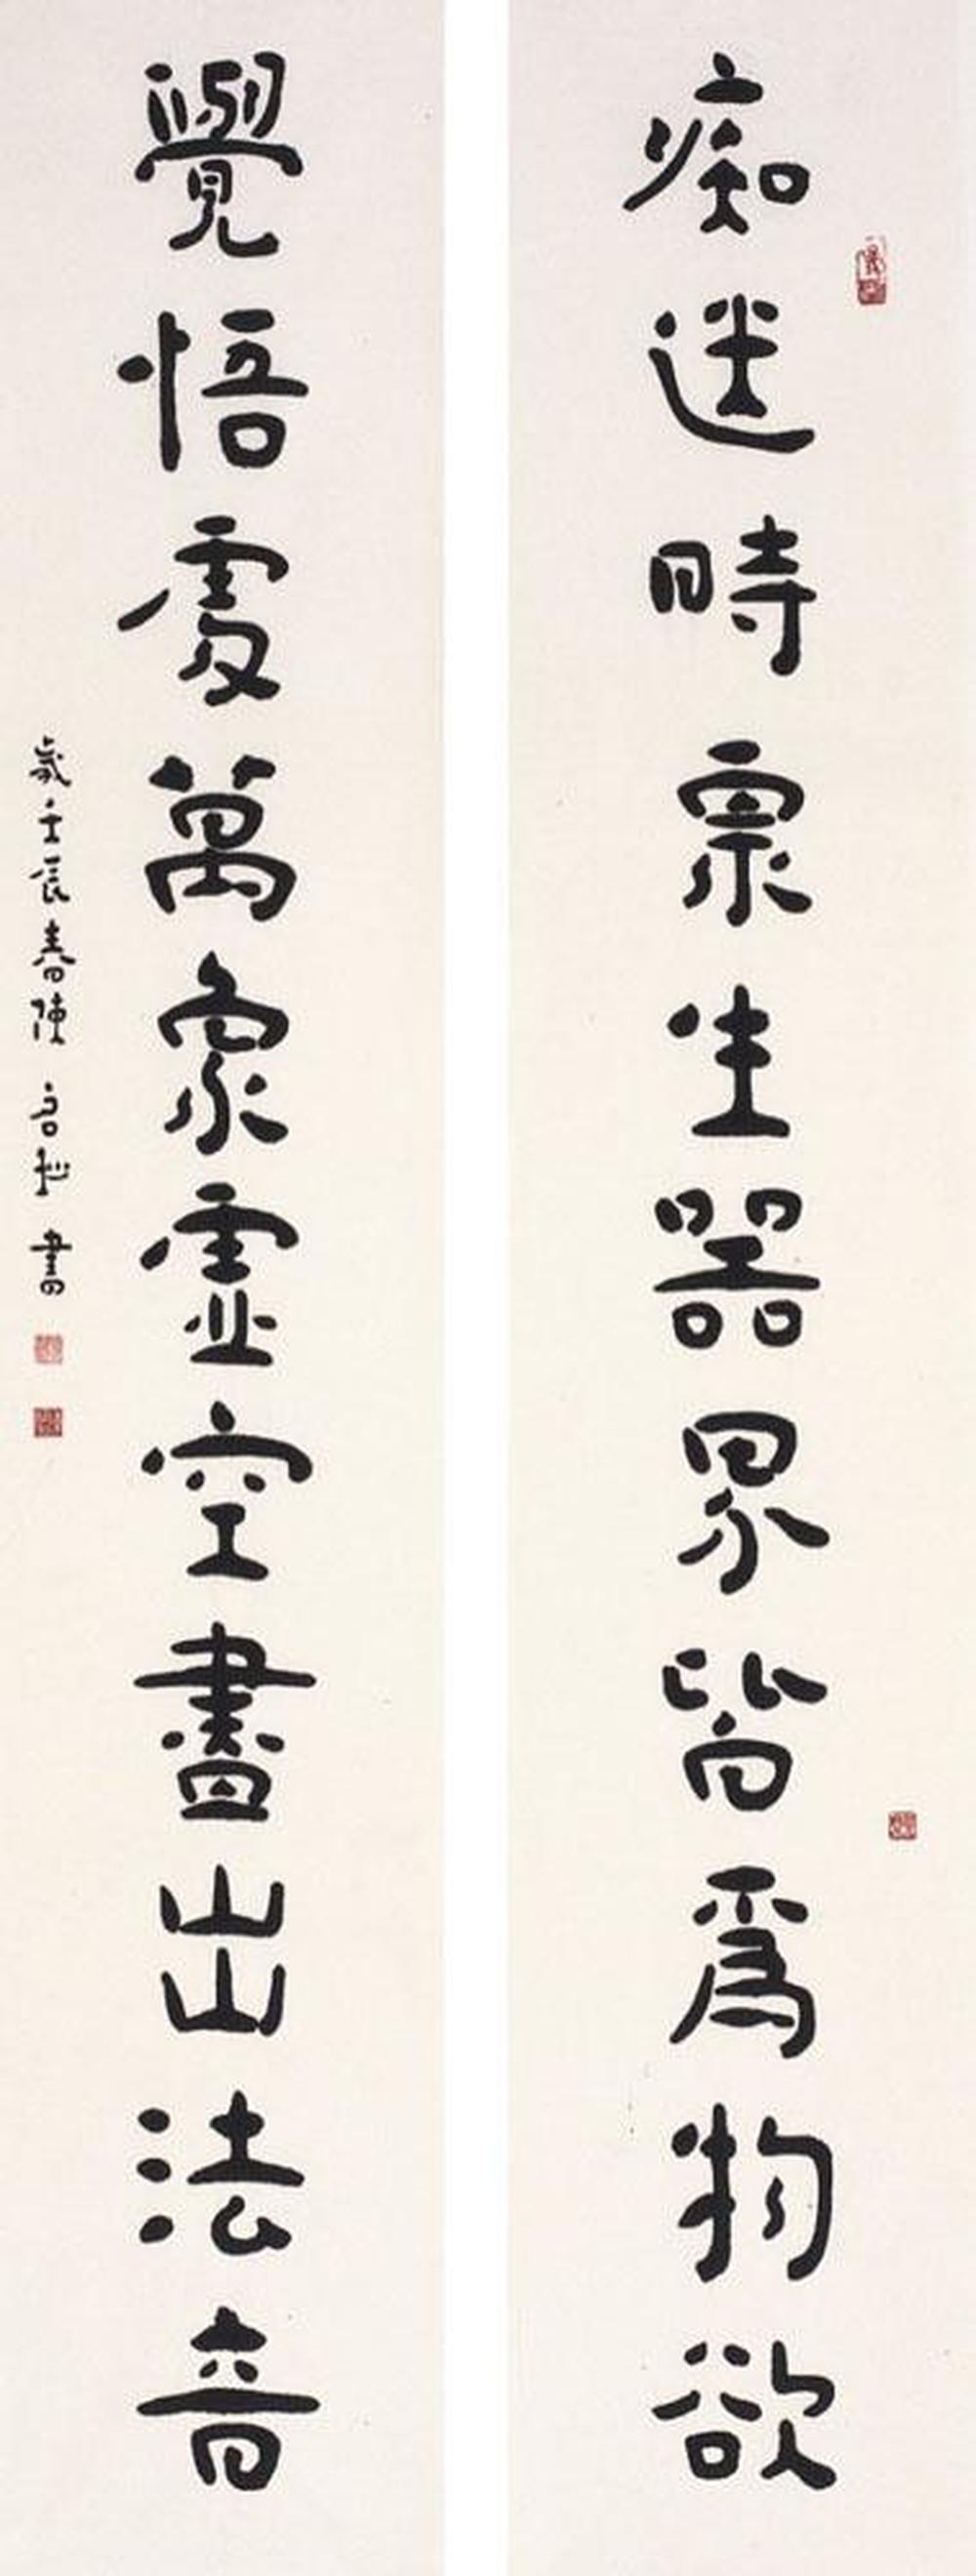 痴迷時眾生器界皆為物欲
覺悟處萬象虛空盡出法音
歲壬辰春陳 書